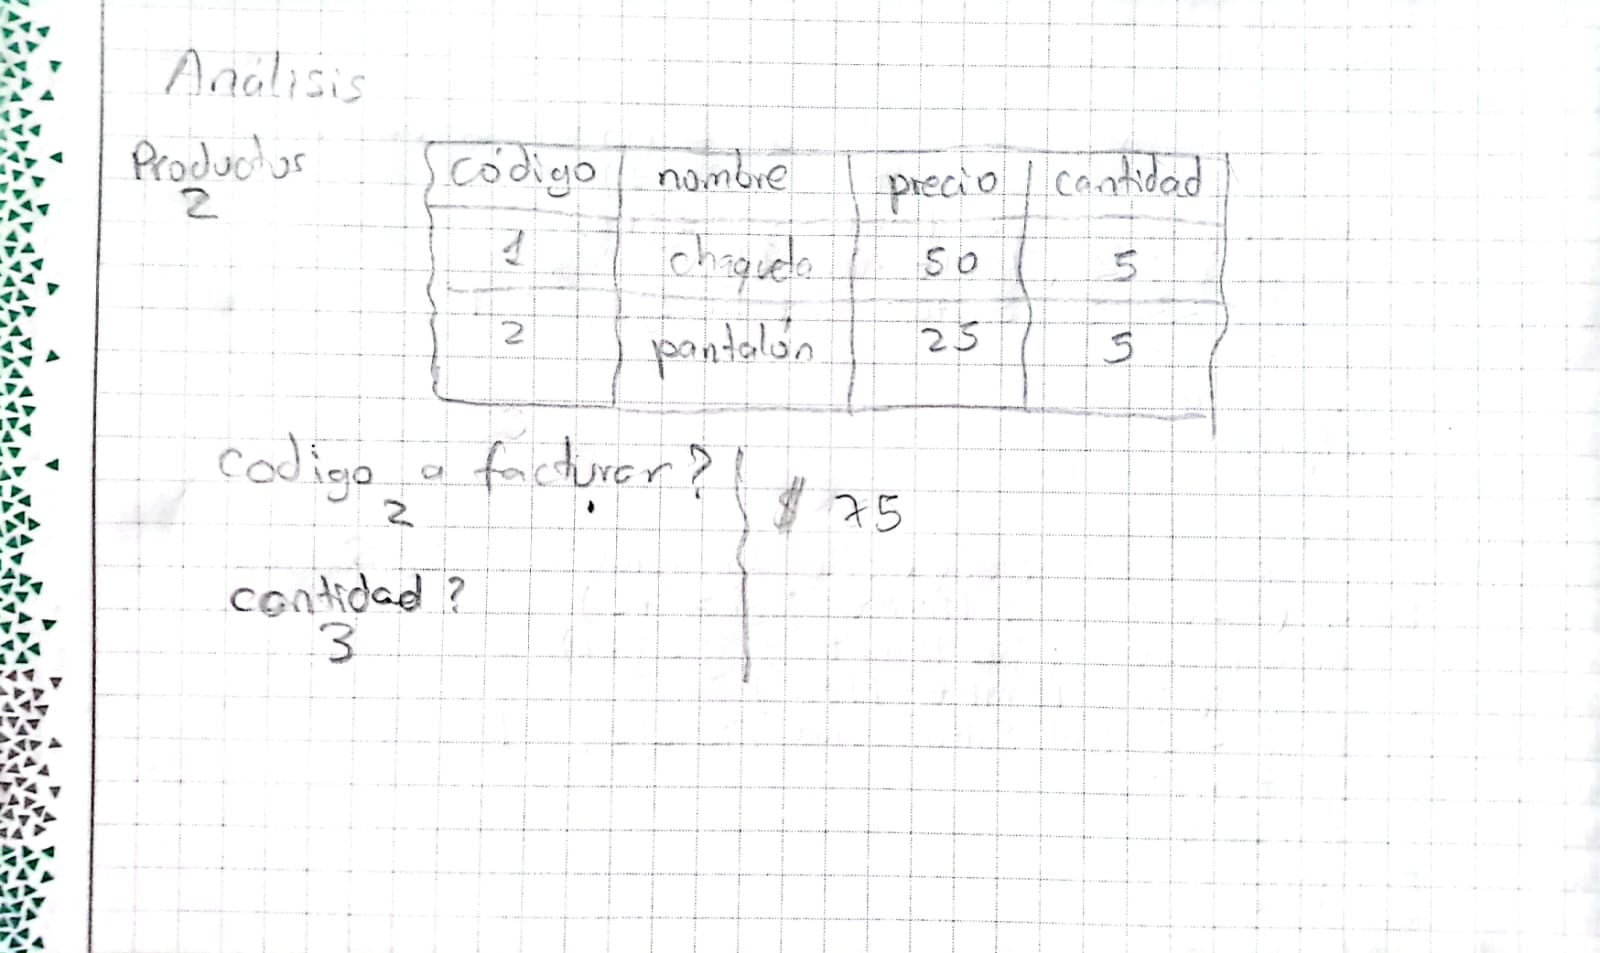 Análisis
Productos
2
código nombre precio cantidad
1 chaqueta 50 5
2 pantalón 25 5
codigo a facturar?
2
$ 75
cantidad?
3